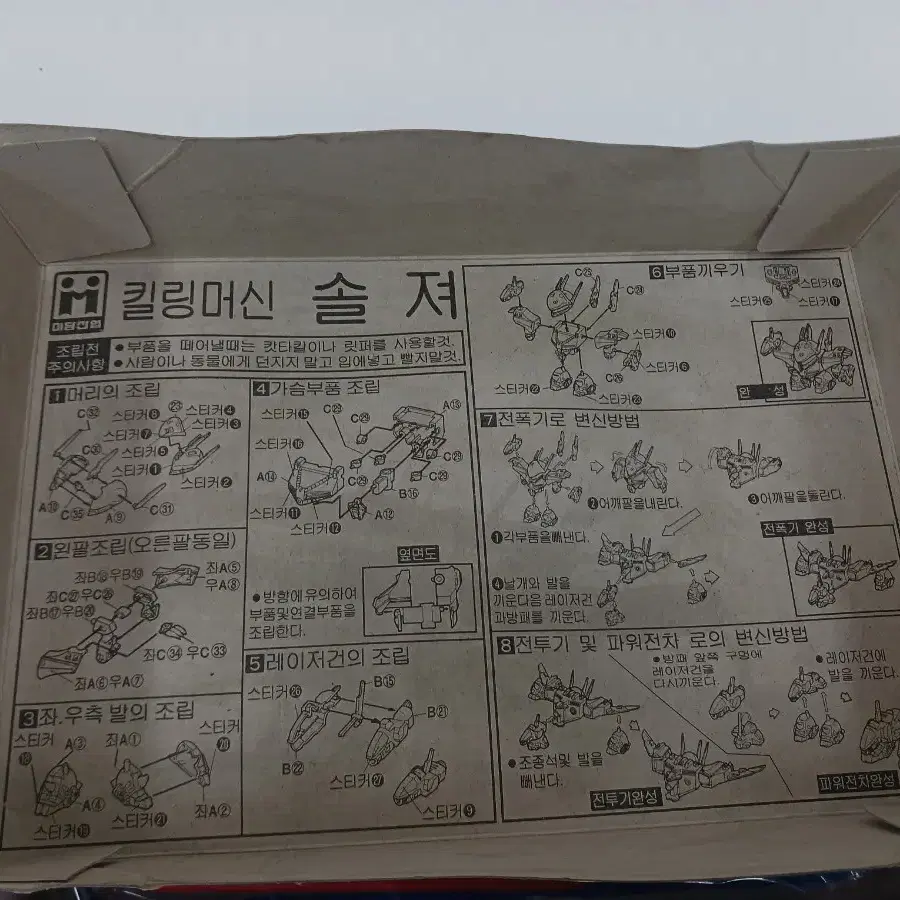 킬링머신 솔져
조립전
주의사항
● 부품을 떼어낼때는 캇타칼이나 릿퍼를 사용할것.
● 사람이나 동물에게 던지지 말고 입에넣고 빨지말것.
1 머리의 조립
C㉜
스티커⑥
㉓
스티커④
스티커⑦
스티커③
스티커⑤
스티커①
스티커②
A⑩
C㉟
A⑨
C㉛
2 왼팔조립(오른팔동일)
좌B⑱우B⑲
좌A⑤
우A⑧
좌C㉗우C㉖
좌B⑰우B⑳
좌C㉞ 우C㉝
좌A⑥우A⑦
3 좌.우측 발의 조립
스티커
A③
좌A①
스티커
⑱
⑳
A④
스티커⑲
스티커㉑
좌A②
4 가슴부품 조립
스티커⑮
C㉙
C㉙
A⑬
스티커⑯
A⑭
C㉙
C㉙
C㉙
B⑯
스티커⑪
스티커⑫
A⑫
옆면도
● 방향에 유의하여
부품및연결부품을
조립한다.
5 레이저건의 조립
스티커㉖
B⑮
B㉑
B㉒
스티커㉗
스티커⑨
6 부품끼우기
C㉕
C㉔
스티커㉔
스티커㉕
스티커⑰
스티커⑩
스티커⑧
스티커㉒
C㉖
스티커㉓
완 성
7 전폭기로 변신방법
❶각부품을빼낸다.
❷어깨팔을내린다.
❸어깨팔을돌린다.
❹날개와 발을
끼운다음 레이저건
과방패를 끼운다.
전폭기 완성
8 전투기 및 파워전차 로의 변신방법
● 방패 앞쪽 구멍에
레이저건을
다시끼운다.
● 레이저건에
발을 끼운다.
● 조종석및 발을
빼낸다.
전투기완성
파워전차완성